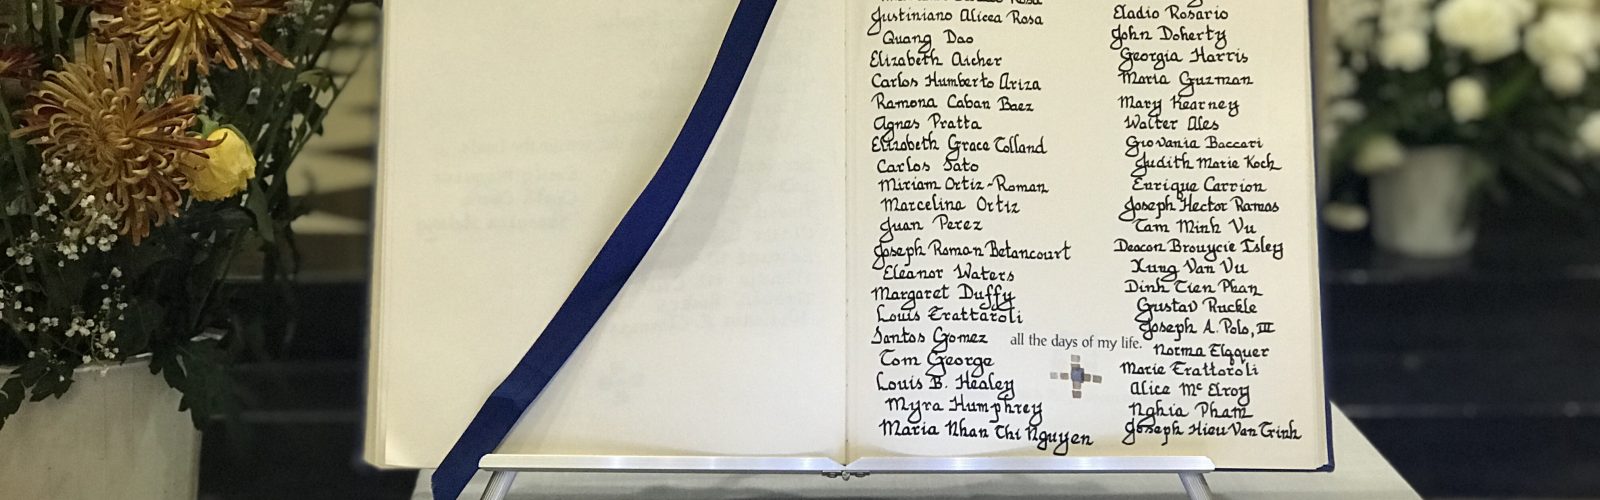 Justiniano Alicea Rosa
Quang Dao
Elizabeth Aicher
Carlos Humberto Ariza
Ramona Caban Baez
Agnes Pratta
Elizabeth Grace Tolland
Carlos Sato
Miriam Ortiz-Roman
Marcelina Ortiz
Juan Perez
Joseph Roman Betancourt
Eleanor Waters
Margaret Duffy
Louis Trattaroli
Santos Gomez
Tom George
Louis B. Healey
Myra Humphrey
Maria Nhan Thi Nguyen
all the days of my life.
Eladio Rosario
John Doherty
Georgia Harris
Maria Guzman
Mary Kearney
Walter Ales
Giovania Baccari
Judith Marie Koch
Enrique Carrion
Joseph Hector Ramos
Tam Minh Vu
Deacon Brouycie Isley
Xung Van Vu
Dinh Tien Phan
Gustav Ruckle
Joseph A. Polo, III
Norma Elqquer
Marie Trattaroli
Alice Mc Elroy
Nghia Pham
Joseph Hieu Van Trinh